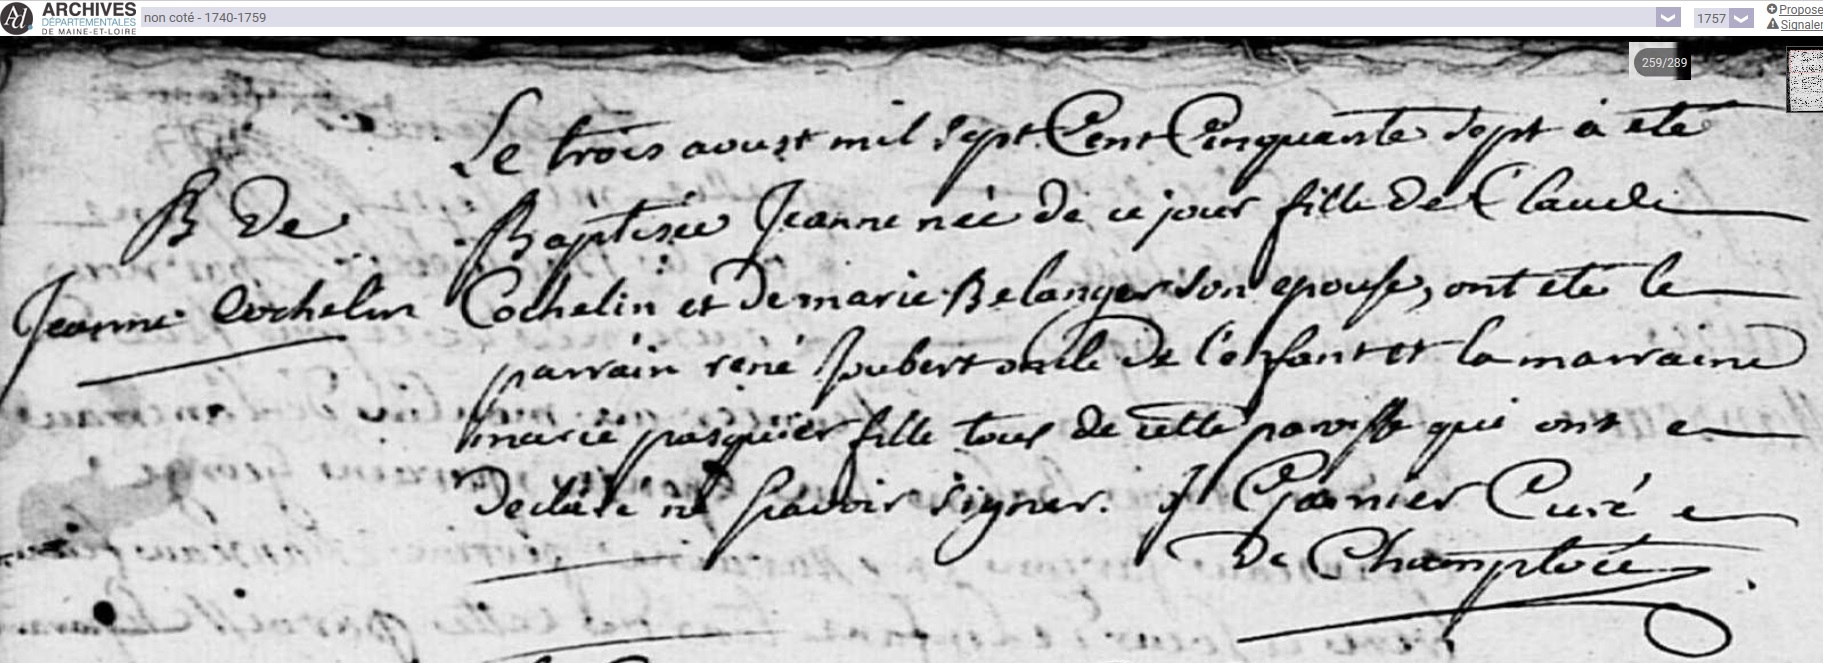 ARCHIVES
DÉPARTEMENTALES
DE MAINE-ET-LOIRE
non coté - 1740-1759
1757
Propose
Signaler
259/289
Le trois aoust mil sept Cent Cinquante sept à eté
B De
Baptisée Jeanne née de ce jour fille De Claude
Jeanne Cochelin
Cochelin et De marie Belanger son epouse, ont eté le
parrain rené Joubert oncle De l'enfant et la marraine
marie pasquier fille tous de cette paroisse qui ont
Declaré ne sçavoir signer. J Garnier Curé
De Champtocé